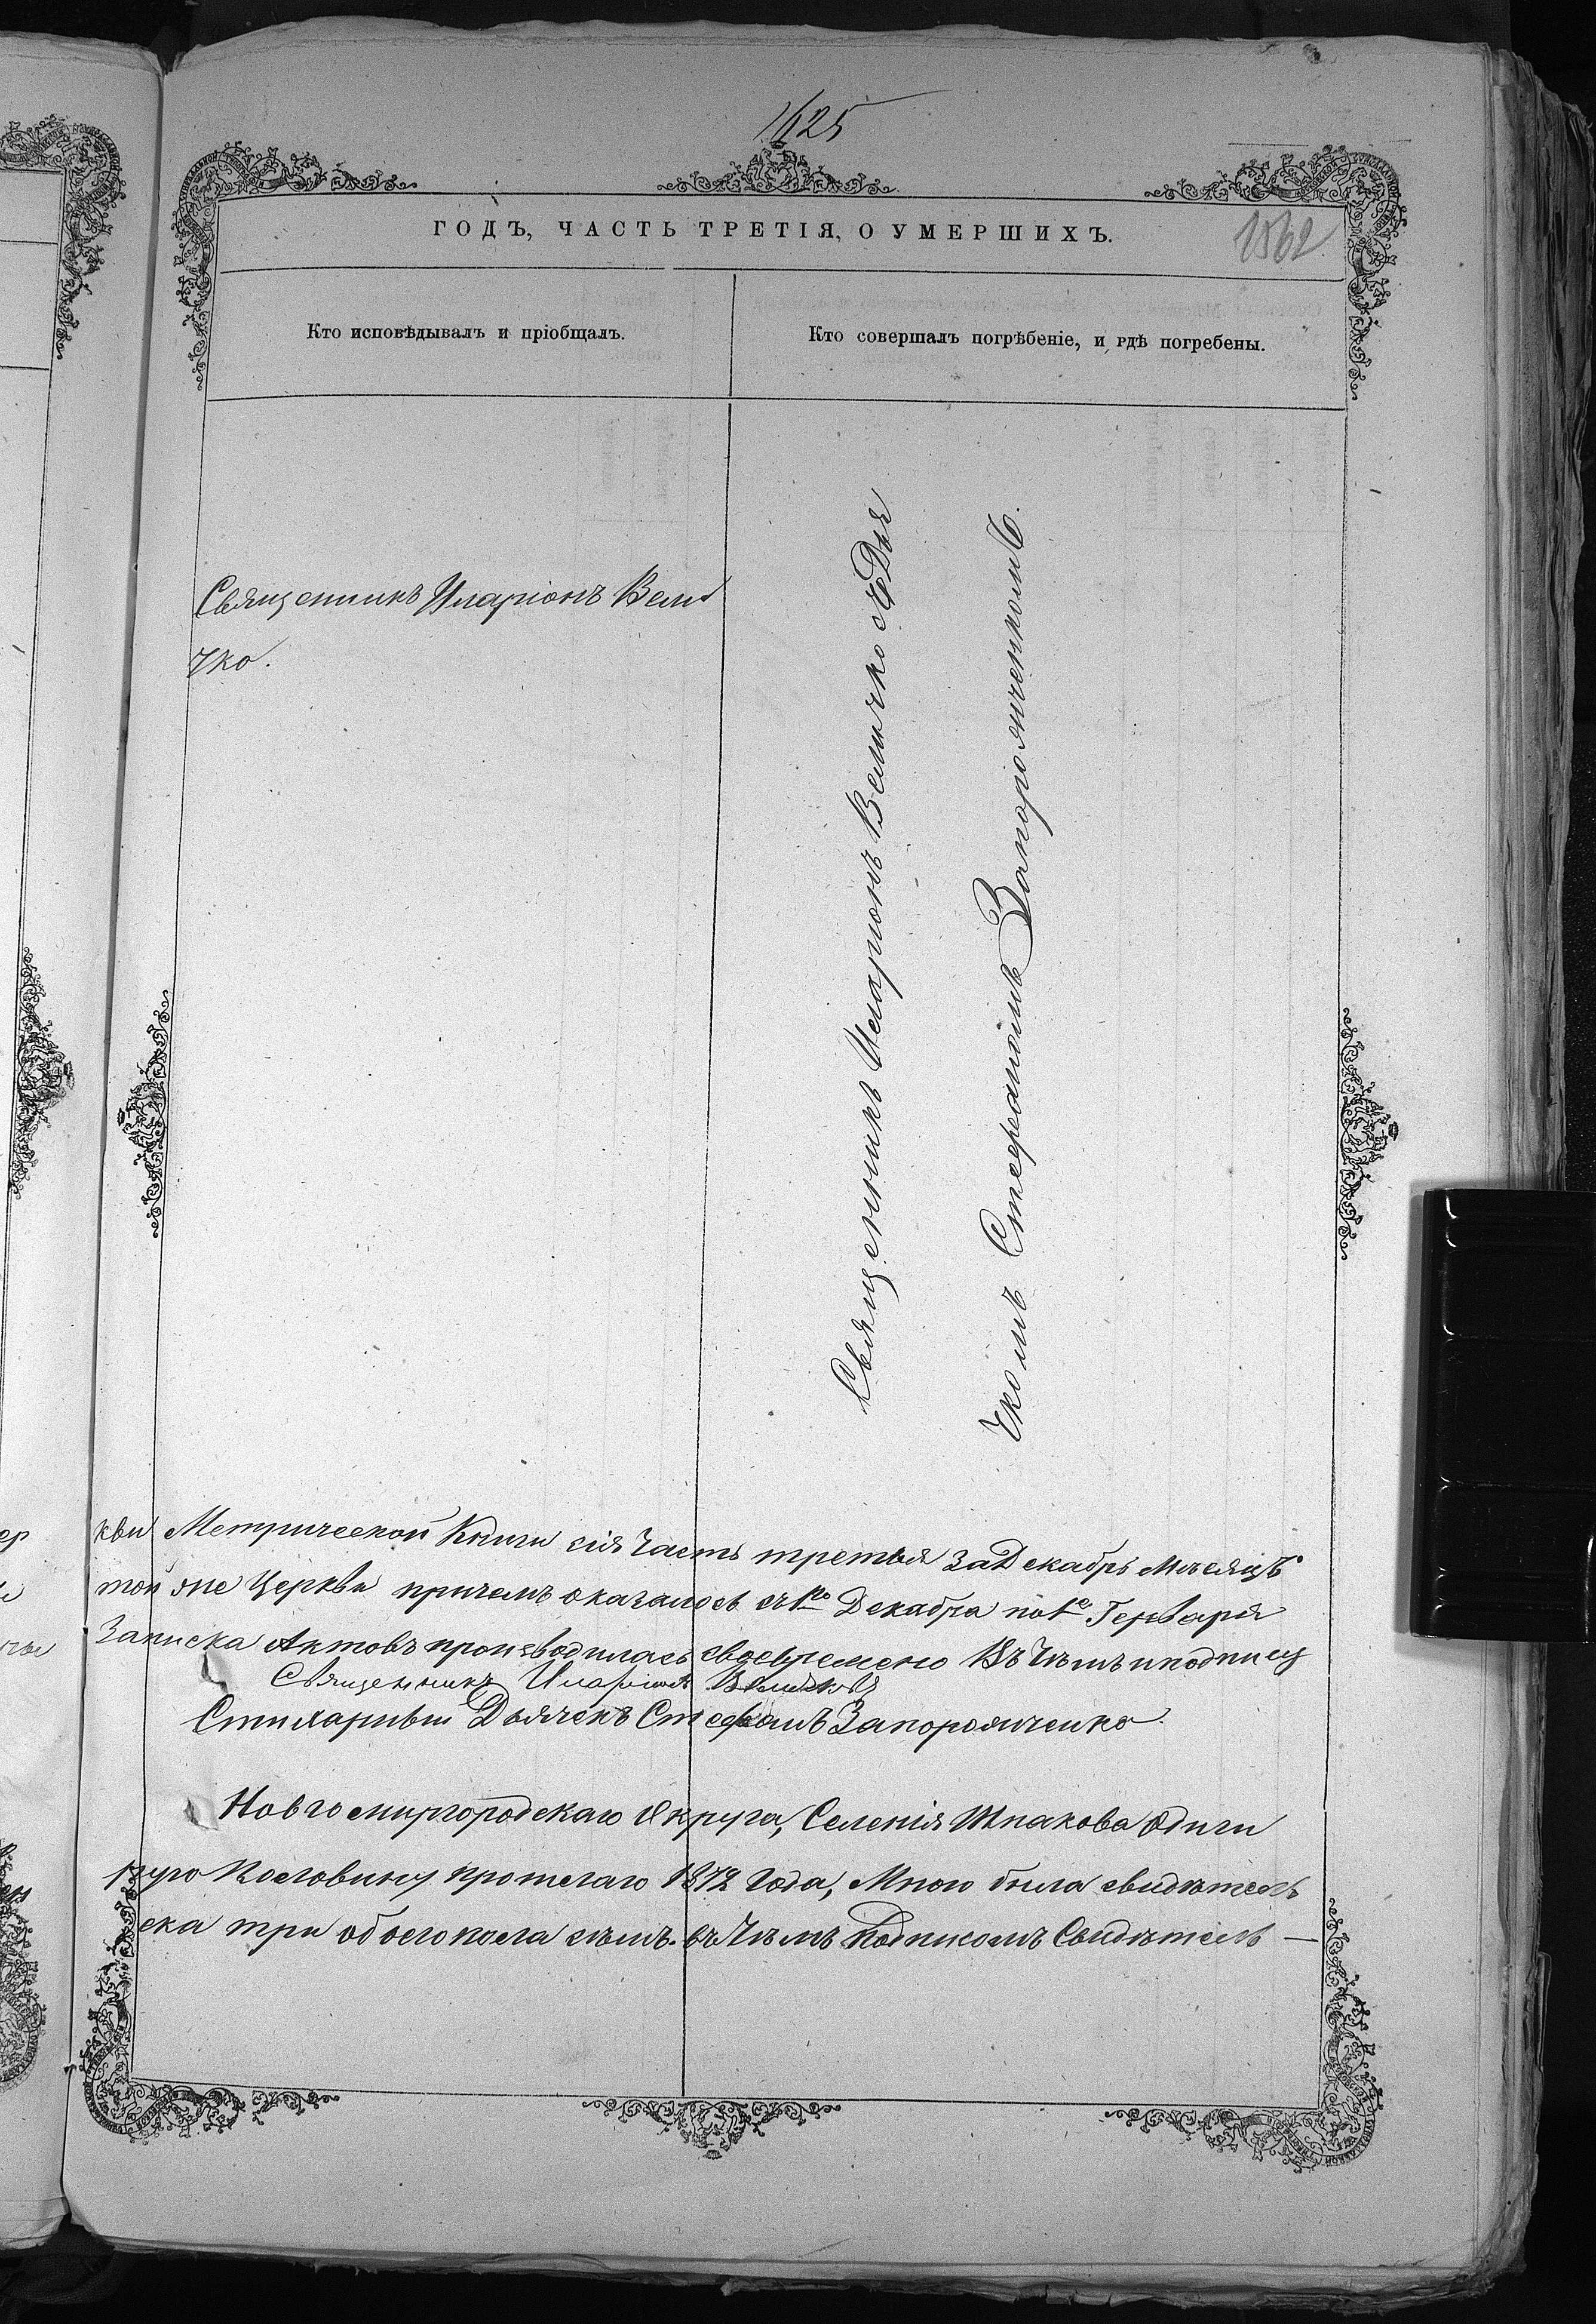 1625
ГОДЪ, ЧАСТЬ ТРЕТІЯ, О УМЕРШИХЪ.
1562
Кто исповѣдывалъ и пріобщалъ.
Кто совершалъ погрѣбеніе, и гдѣ погребены.
Священникъ Иларіонъ Вели
чко.
Священникъ Иларіонъ Величко с Дья
чкомъ Стефаномъ Запорожченкомъ.
кви Метрической Книги сія Часть третья за Декабрь Мѣсяцъ
той же Церкви причемъ оказалось съ 1го Декабра по 1е Генваря
Записка Актовъ производилась своевремено Въ Чѣмъ и подпису
Священникъ Иларіонъ Величко
Стихарный Дьячекъ Стефанъ Запорожченко.
Новомиргородскаго Округа, Селенія Шпакова Одиги
кую Половину протегаго 1872 Года, Мною была свидѣтель
ска три обоего пола съмъ. въ Чѣмъ Подписомъ Свидѣтель—